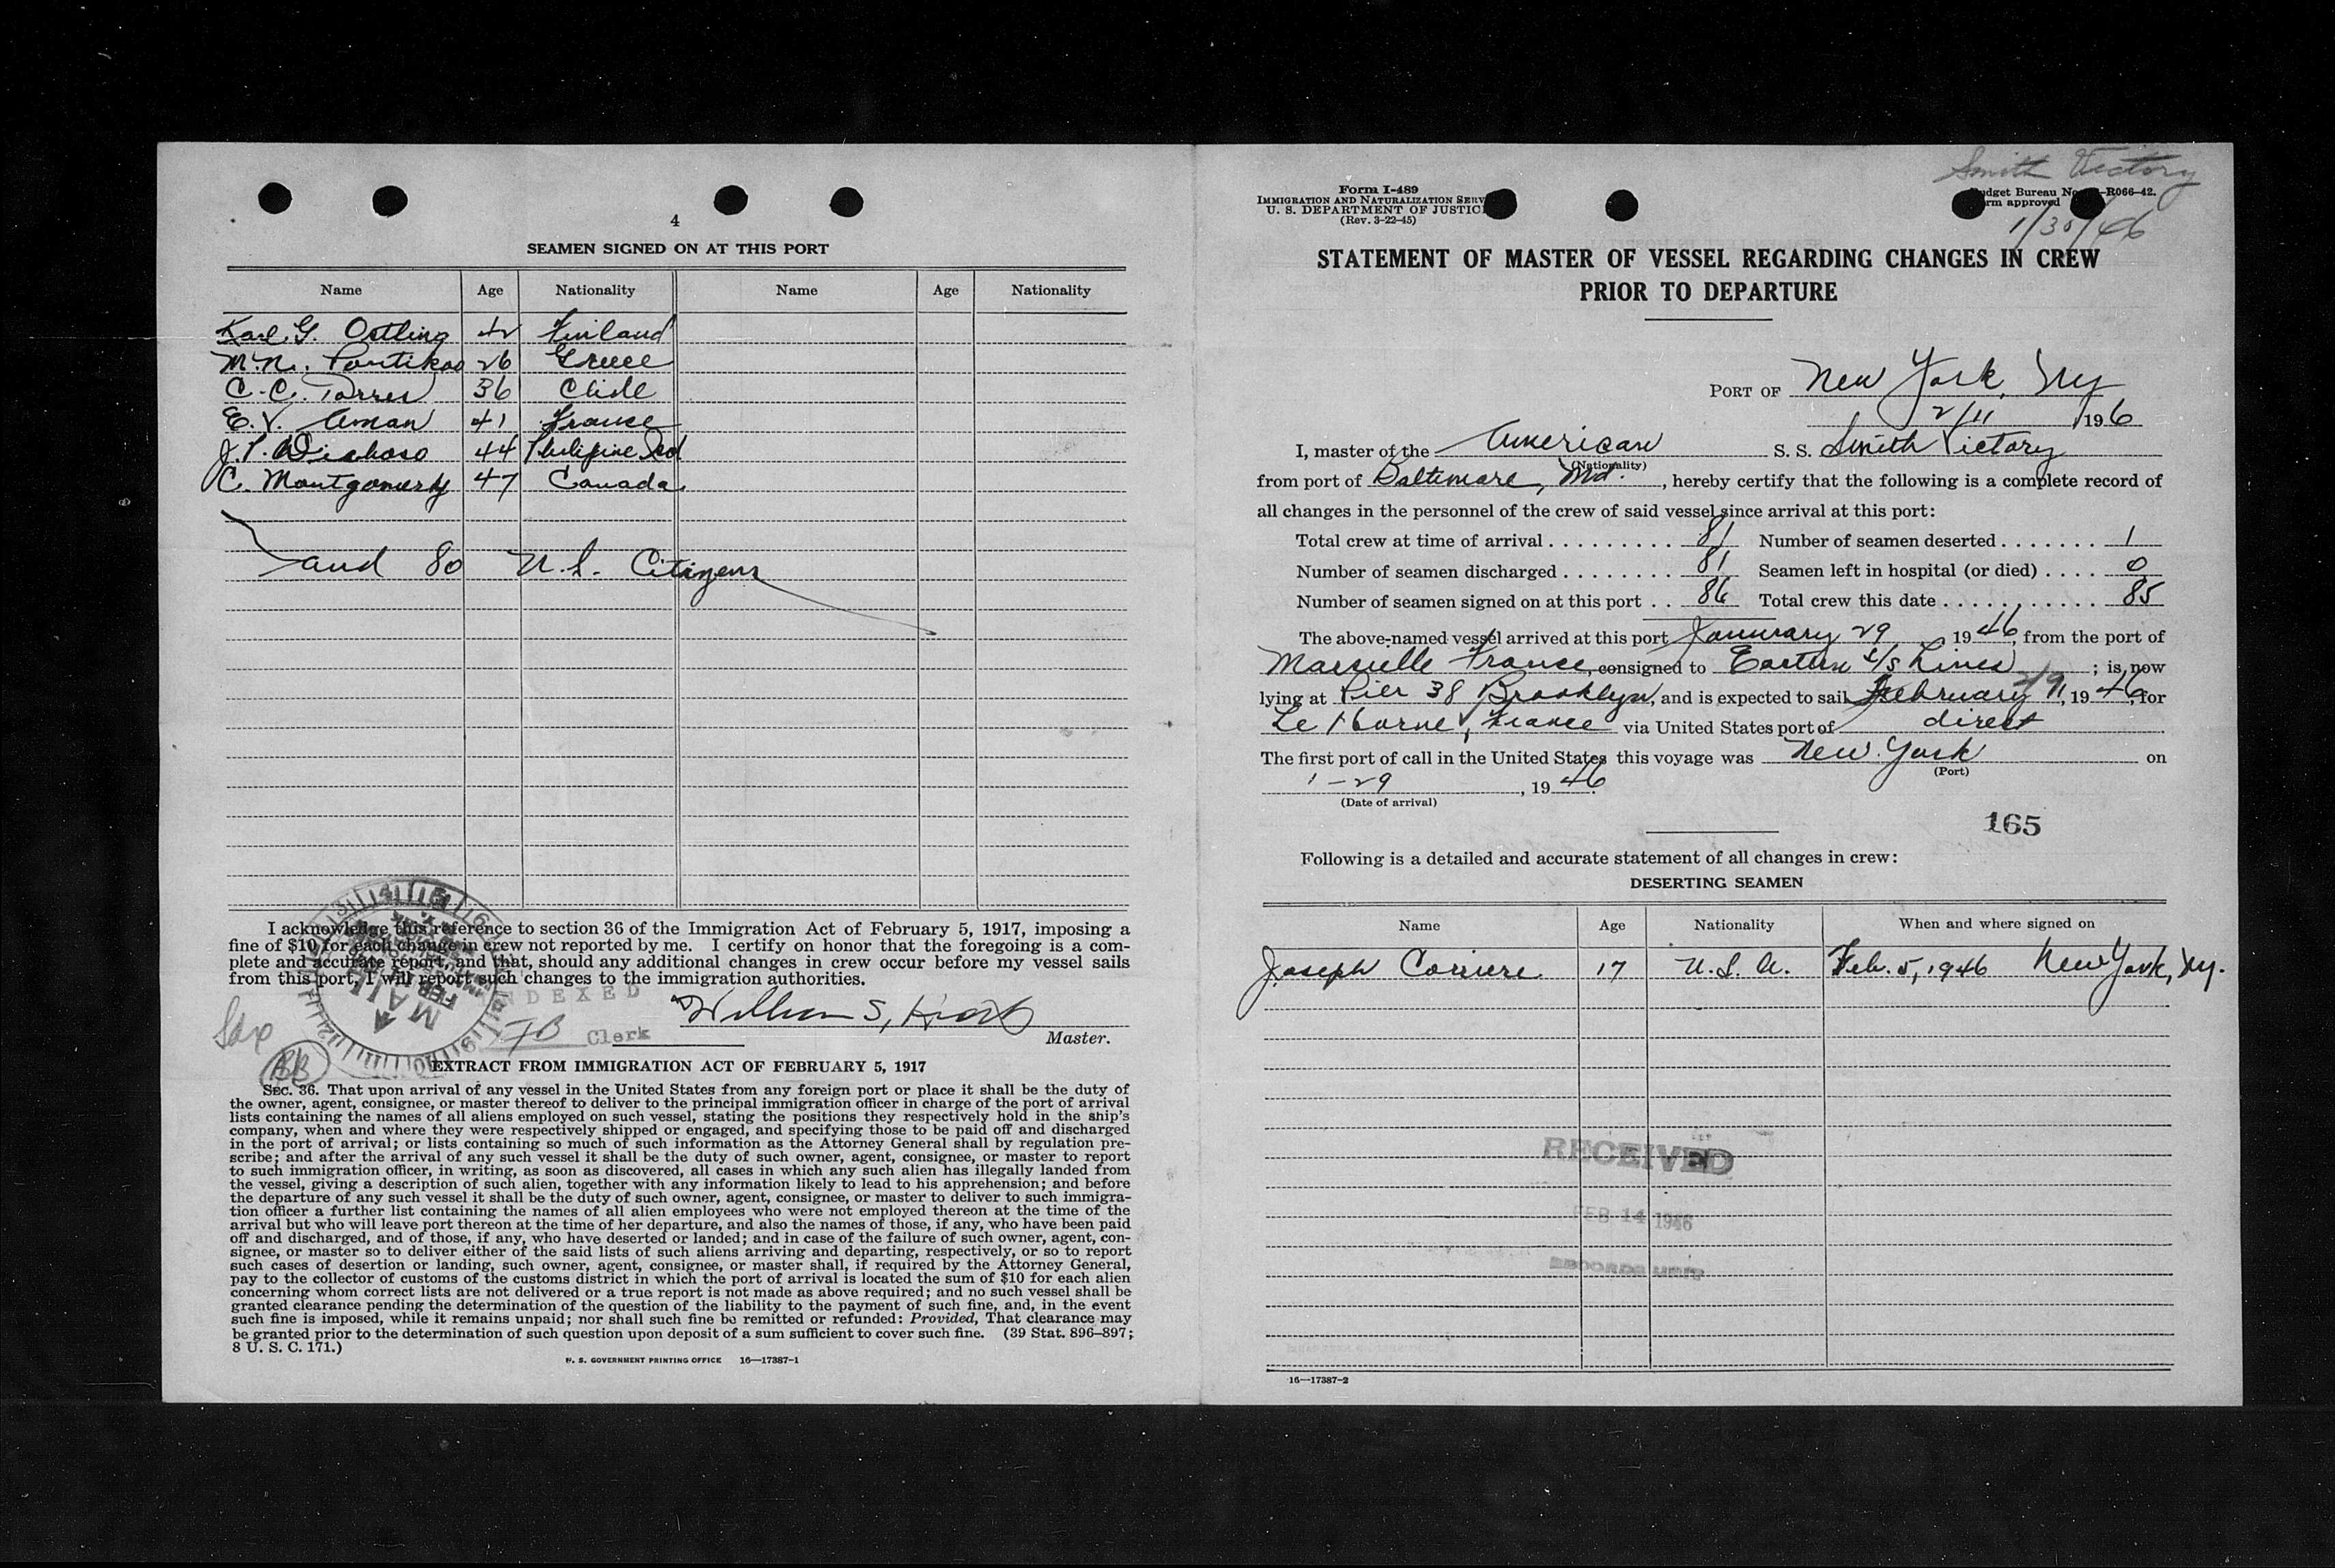 4
SEAMEN SIGNED ON AT THIS PORT
Name Age Nationality Name Age Nationality
Karl G. Ostling 42 Finland
M. N. Pontikas 26 Greece
C. C. Torres 36 Chile
E. V. Aman 41 France
J. P. 44 Philipine Isd
C. Montgomery 47 Canada
and 80 U.S. Citizens
I acknowledge this reference to section 36 of the Immigration Act of February 5, 1917, imposing a
fine of $10 for each change in crew not reported by me. I certify on honor that the foregoing is a com-
plete and accurate report, and that, should any additional changes in crew occur before my vessel sails
from this port, I will report such changes to the immigration authorities.
INDEXED
William S.
FB Clerk
Master.
BB
EXTRACT FROM IMMIGRATION ACT OF FEBRUARY 5, 1917
SEC. 36. That upon arrival of any vessel in the United States from any foreign port or place it shall be the duty of
the owner, agent, consignee, or master thereof to deliver to the principal immigration officer in charge of the port of arrival
lists containing the names of all aliens employed on such vessel, stating the positions they respectively hold in the ship's
company, when and where they were respectively shipped or engaged, and specifying those to be paid off and discharged
in the port of arrival; or lists containing so much of such information as the Attorney General shall by regulation pre-
scribe; and after the arrival of any such vessel it shall be the duty of such owner, agent, consignee, or master to report
to such immigration officer, in writing, as soon as discovered, all cases in which any such alien has illegally landed from
the vessel, giving a description of such alien, together with any information likely to lead to his apprehension; and before
the departure of any such vessel it shall be the duty of such owner, agent, consignee, or master to deliver to such immigra-
tion officer a further list containing the names of all alien employees who were not employed thereon at the time of the
arrival but who will leave port thereon at the time of her departure, and also the names of those, if any, who have been paid
off and discharged, and of those, if any, who have deserted or landed; and in case of the failure of such owner, agent, con-
signee, or master so to deliver either of the said lists of such aliens arriving and departing, respectively, or so to report
such cases of desertion or landing, such owner, agent, consignee, or master shall, if required by the Attorney General,
pay to the collector of customs of the customs district in which the port of arrival is located the sum of $10 for each alien
concerning whom correct lists are not delivered or a true report is not made as above required; and no such vessel shall be
granted clearance pending the determination of the question of the liability to the payment of such fine, and, in the event
such fine is imposed, while it remains unpaid; nor shall such fine be remitted or refunded: Provided, That clearance may
be granted prior to the determination of such question upon deposit of a sum sufficient to cover such fine. (39 Stat. 896–897;
8 U. S. C. 171.)
U. S. GOVERNMENT PRINTING OFFICE 16—17387-1
Smith Victory
Form I-489
IMMIGRATION AND NATURALIZATION SERV
U. S. DEPARTMENT OF JUSTIC
(Rev. 3-22-45)
udget Bureau No. -R066-42.
rm approved
1/30/46
STATEMENT OF MASTER OF VESSEL REGARDING CHANGES IN CREW
PRIOR TO DEPARTURE
PORT OF New York, Ny
2/11 196
I, master of the American S. S. Smith Victory
(Nationality)
from port of Baltimore, Md. , hereby certify that the following is a complete record of
all changes in the personnel of the crew of said vessel since arrival at this port:
Total crew at time of arrival . . . . . . . . . 81 Number of seamen deserted . . . . . . . 1
Number of seamen discharged . . . . . . . . 81 Seamen left in hospital (or died) . . . . 0
Number of seamen signed on at this port . . 86 Total crew this date . . . . . . . . . . . 85
The above-named vessel arrived at this port January 29 1946, from the port of
Marsielle France, consigned to Eastern S/S Lines ; is now
lying at Pier 38 Brooklyn, and is expected to sail February 9, 1946, for
Le Havre, France via United States port of direct
The first port of call in the United States this voyage was New York on
(Port)
1-29, 1946.
(Date of arrival)
165
Following is a detailed and accurate statement of all changes in crew:
DESERTING SEAMEN
Name Age Nationality When and where signed on
Joseph Corriere 17 U.S.A. Feb. 5, 1946 New York, Ny.
RECEIVED
FEB 14 1946
RECORDS UNIT
16—17387-2